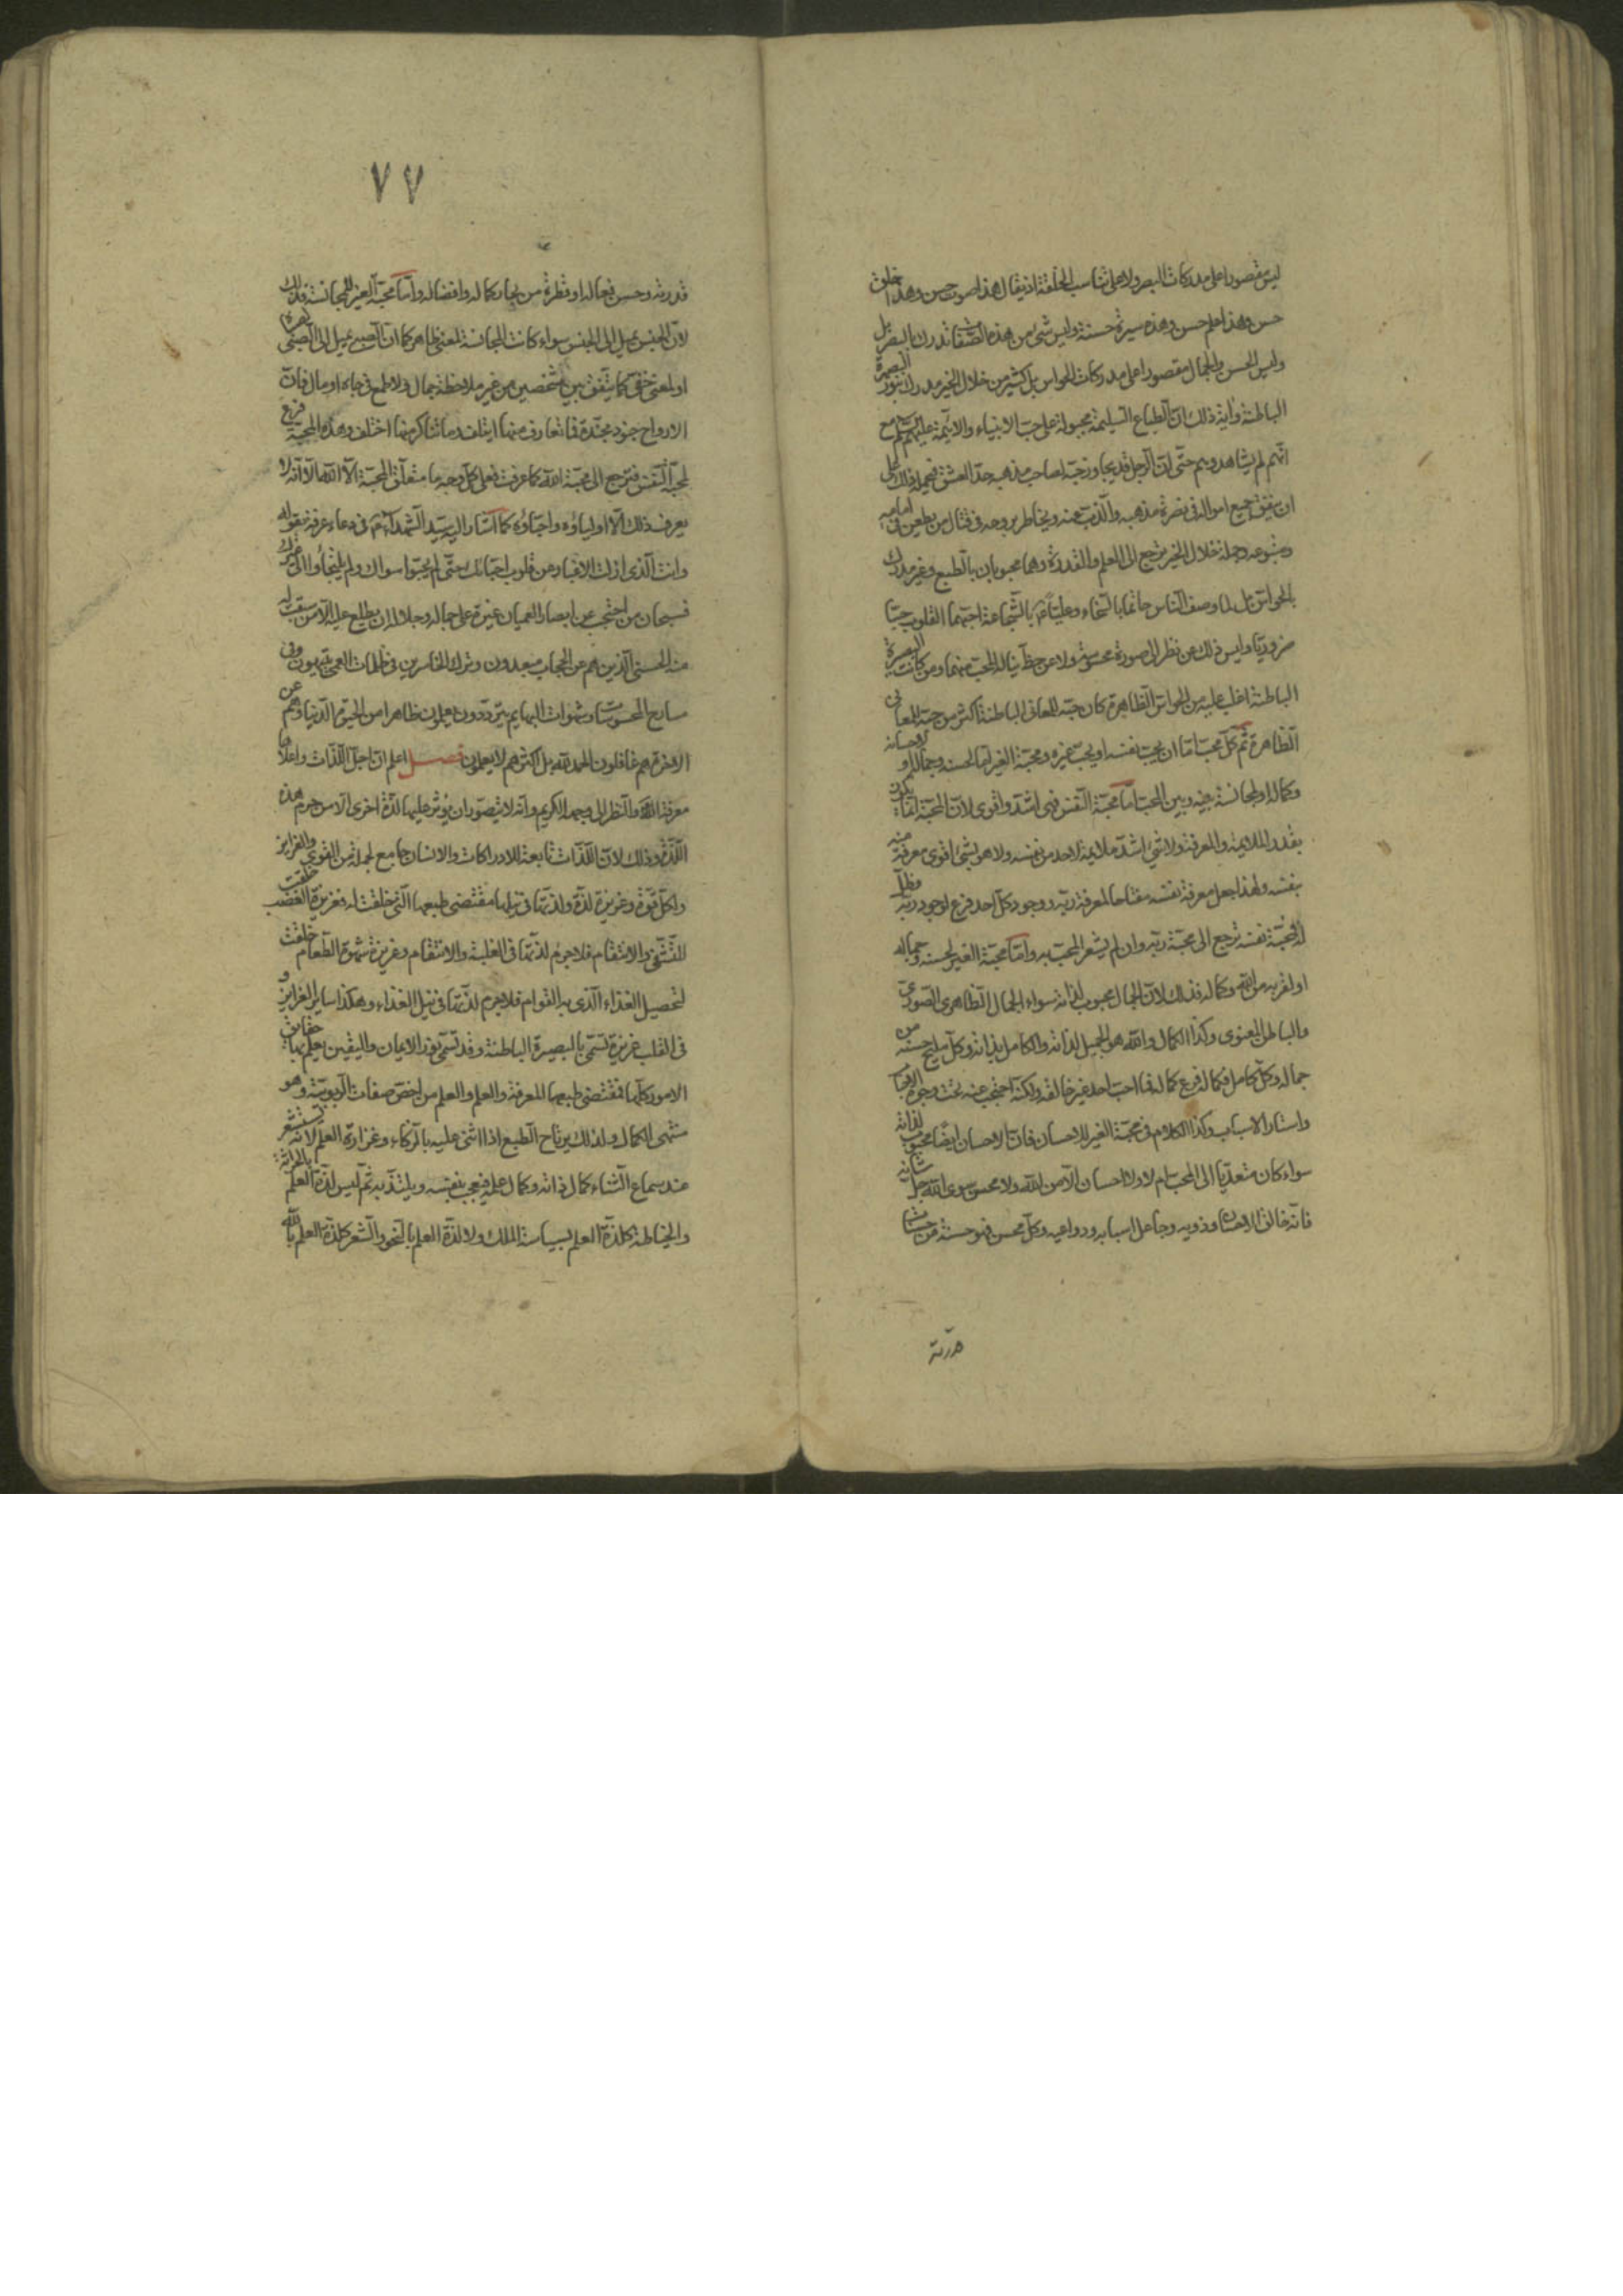 ليس مقصورا على مدركات البصر ولا على تناسب الخلقة اذ يقال هذا صوت حسن وهذا خلق
حسن وهذا علم حسن وهذه سيرة حسنة وليس شئ من هذه الصفات تدرك بالبصر بل
وليس الحسن والجمال مقصورا على مدركات الحواس بل كثير من خلال الخير مدرك بنور البصيرة
الباطنة وآية ذلك ان الطباع السليمة مجبولة على حب الانبياء والائمة عليهم السلم مع
انهم لم يشاهدوهم حتى ان الرجل قد يجاوز حبه لصاحب مذهبه حد العشق فيحمله ذلك على
ان ينفق جميع امواله في نصرة مذهبه والذب عنه ويخاطر بروحه في قتال من يطعن في امامه
ومتبوعه وجملة خلال الخير ترجع الى العلم والقدرة وهما محبوبان بالطبع وغير مدرك
بالحواس بل لما وصف الناس حاتما بالسخاء وعليا ع بالشجاعة احبهما القلوب حبا
ضروريا وليس ذلك عن نظر الى صورة محسوسة ولا عن حظ يناله المحب منهما ومن كانت البصيرة
الباطنة اغلب عليه من الحواس الظاهرة كان حبه للمعاني الباطنة اكثر من حبه للمعاني
الظاهرة ثم كل محب اما ان يحب نفسه او يحب غيره ومحبة الغير اما لحسنه وجماله او لاحسانه
وكماله او لمجانسة بينه وبين المحب اما محبة النفس فهى اشد واقوى لان المحبة انما يكون
بقدر الملايمة والمعرفة ولا شئ اشد ملايمة لاحد من نفسه ولا هو بشئ اقوى معرفة منه
بنفسه ولهذا جعل معرفة نفسه مفتاحا لمعرفة ربه ووجود كل احد فرع لوجود ربه وظل
له فمحبة نفسه ترجع الى محبة ربه وان لم يشعر المحب به واما محبة الغير لحسنه وجماله
او لقربه من الله وكماله فذلك لان الجمال محبوب لذاته سواء الجمال الظاهرى الصورى
والباطن المعنوى وكذا الكمال والله هو الجميل لذاته والكامل بذاته وكل مليح حسنه من
جماله وكل كامل فكماله فرع كماله فما احب احد غير خالقه ولكنه احتجب عنه تحت وجوه الاحباب
واستار الاسباب وكذا الكلام في محبة الغير للاحسان فان الاحسان ايضا محبوب لذاته
سواء كان متعديا الى المحب ام لا ولا احسان الا من الله ولا محسن سوى الله جل شأنه
فانه خالق الاحسان وذويه وجاعل اسبابه ودواعيه وكل محسن فهو حسنة من حسنات
قدرته
٧٧
قدرته وحسن فعاله او قطرة من بحار كماله وافضاله واما محبة الغير للمجانسة فذلك
لان الجنس يميل الى الجنس سواء كانت المجانسة لمعنى ظاهر كما ان الصبى يميل الى الصبى لصباه
او لمعنى خفى كما يتفق بين شخصين من غير ملاحظة جمال ولا طمع في جاه او مال فان
الارواح جنود مجندة فما تعارف منها ايتلف وما تناكر منها اختلف وهذه المحبة فرع
لمحبة النفس فترجع الى محبة الله كما عرفت فعلى كل وجه ما متعلق المحبة الا الله الا انه لا
يعرف ذلك الا اولياؤه واحباؤه كما اشار اليه سيد الشهداء ع في دعاء عرفة بقوله
وانت الذى ازلت الاغيار من قلوب احبائك حتى لم يحبوا سواك ولم يلتجأوا الى غيرك
فسبحان من احتجب عن ابصار العميان غيرة على جماله وجلاله ان يطلع عليه الا من سبقت له
منه الحسنى الذين هم عن الحجاب مبعدون وترك الخاسرين في ظلمات العمى يتيهون وفى
مسارح المحسوسات وشهوات البهايم يترددون يعلمون ظاهرا من الحيوة الدنيا وهم عن
الاخرة هم غافلون الحمد لله بل اكثرهم لا يعلمون فصل اعلم ان اجل اللذات واعلاها
معرفة الله والنظر الى وجهه الكريم وانه لا يتصور ان يؤثر عليها لذة اخرى الا من حرم هذه
اللذة وذلك لان اللذات تابعة للادراكات والانسان جامع لجملة من القوى والغرايز
ولكل قوة وغريزة لذة ولذتها في نيلها مقتضى طبعها التى خلقت له فغريزة الغضب خلقت
للتشفى والانتقام فلا جرم لذتها في الغلبة والانتقام وغريزة شهوة الطعام خلقت
لتحصيل الغذاء الذى به القوام فلا جرم لذتها في نيل الغذاء وهكذا ساير الغرايز و
في القلب غريزة تسمى بالبصيرة الباطنة وقد تسمى بنور الايمان واليقين يعلم بها حقايق
الامور كلها فمقتضى طبعها المعرفة والعلم والعلم من اخص صفات الربوبية وهو
منتهى الكمال ولذلك يرتاح الطبع اذا اثنى عليه بالذكاء وغزارة العلم لانه يستشعر
عند سماع الثناء كمال ذاته وكمال علمه فيعجب بنفسه ويلتذ به ثم ليس لذة العلم بالحراثة
والخياطة كلذة العلم بسياسة الملك ولا لذة العلم بالنحو والشعر كلذة العلم بالله